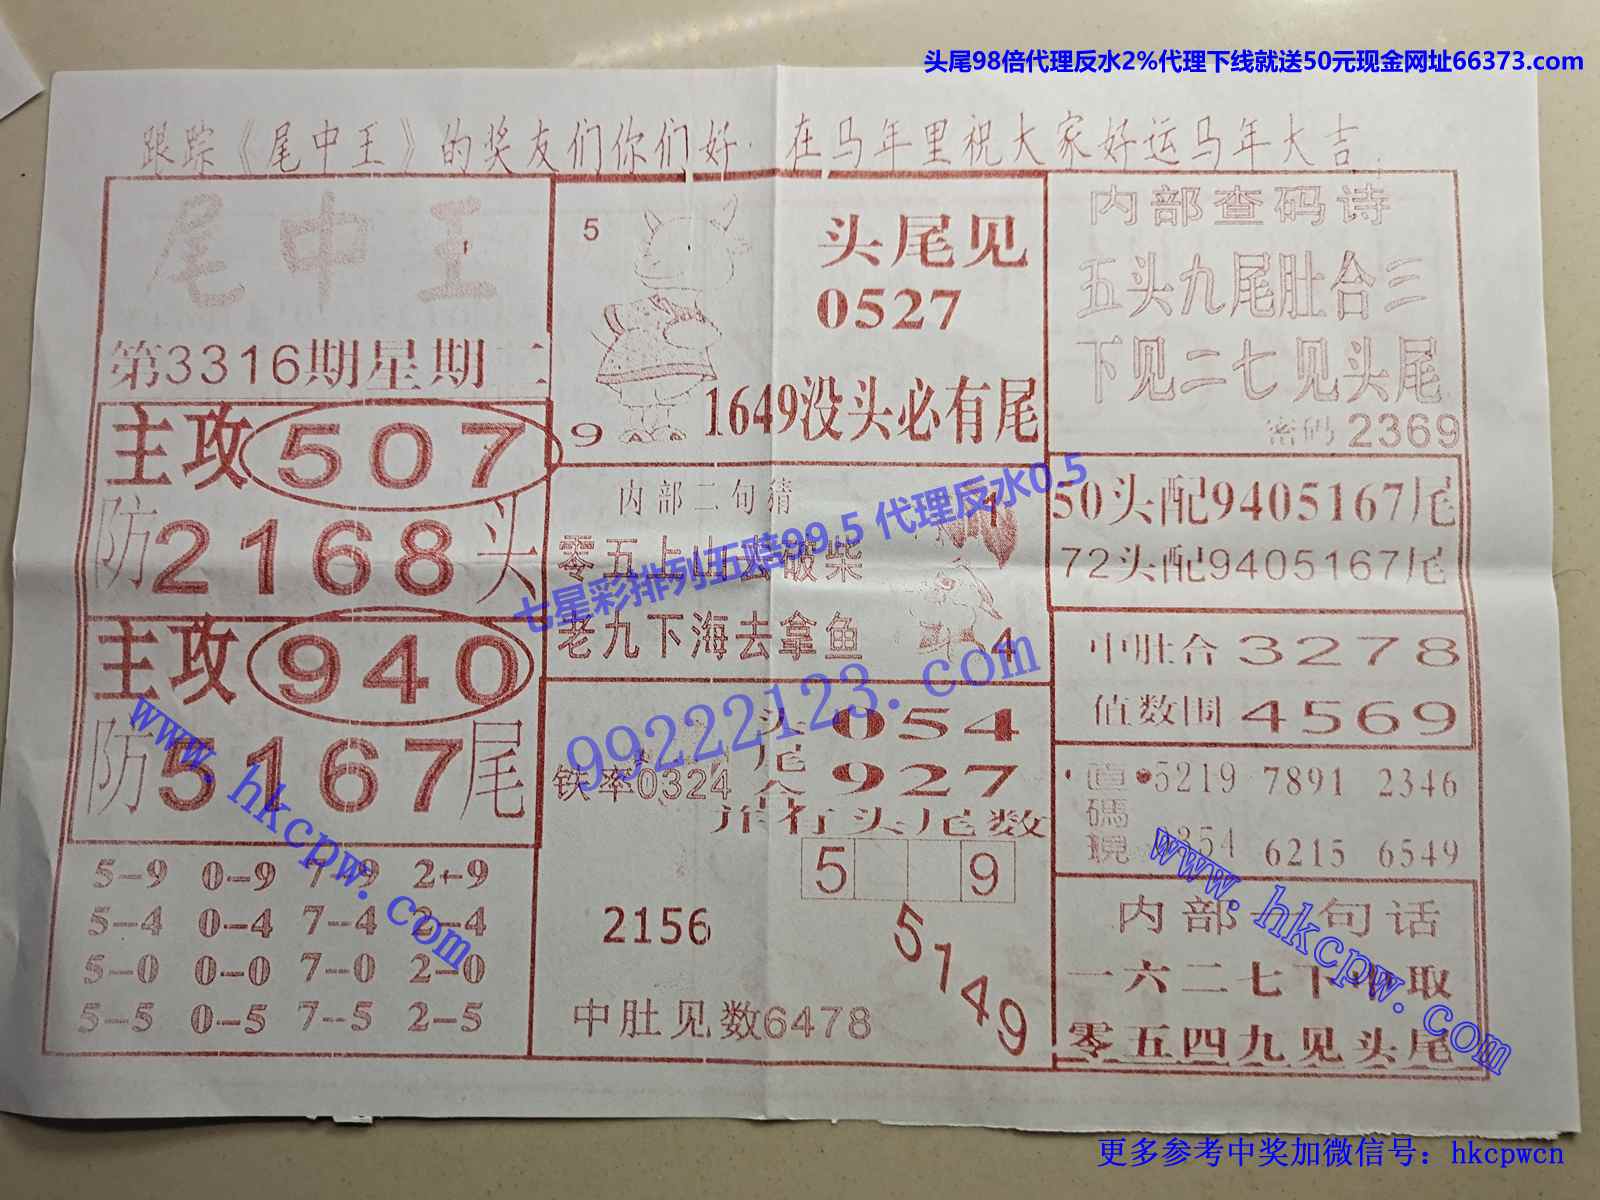 头尾98倍代理反水2%代理下线就送50元现金网址66373.com
跟踪《尾中王》的奖友们你们好.在马年里祝大家好运马年大吉.
尾中王
第3316期星期二
主攻507
防2168头
主攻940
防5167尾
5-9 0-9 7-9 2-9
5-4 0-4 7-4 2-4
5-0 0-0 7-0 2-0
5-5 0-5 7-5 2-5
5
9
头尾见
0527
1649没头必有尾
内部二句猜
零五上山去破柴
老九下海去拿鱼
1
4
头054
尾
合927
铁率0324
并行头尾数
5 9
2156
5149
中肚见数6478
内部查码诗
五头九尾肚合三
下见二七见头尾
密码2369
50头配9405167尾
72头配9405167尾
中肚合3278
值数围4569
直碼現
5219 7891 2346
6215 6549
内部一句话
一六二七下中取
零五四九见头尾
七星彩排列五赔99.5 代理反水0.5
99222123.com
www.hkcpw.com
www.hkcpw.com
更多参考中奖加微信号：hkcpwcn